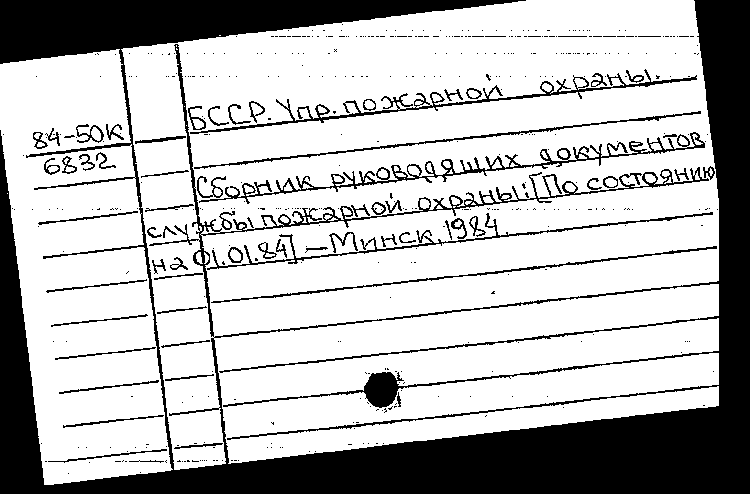 БССР. Упр. пожарной охраны.
84-50К
6832
Сборник руководящих документов
службы пожарной охраны: [По состоянию
на 01.01.84]. — Минск, 1984.